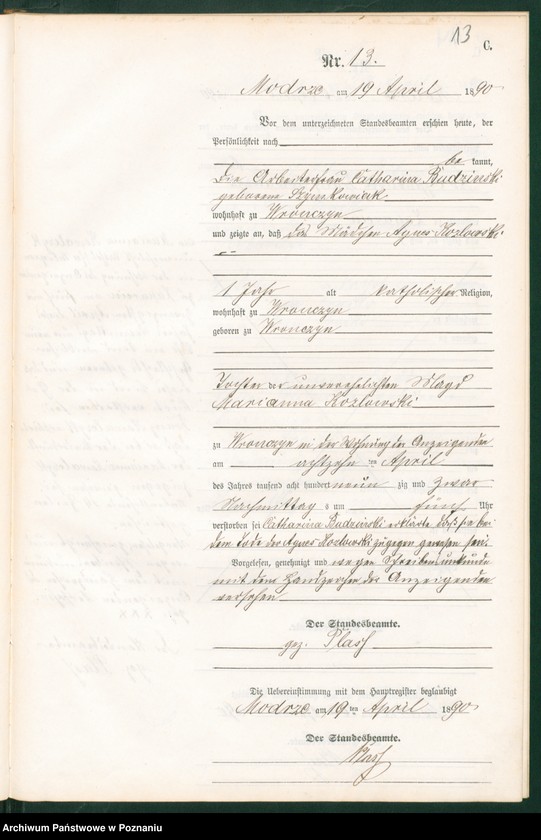 13
C.
Nr. 13.
Modrze, am 19 April 1890
Vor dem unterzeichneten Standesbeamten erschien heute, der
Persönlichkeit nach
be kannt,
die Arbeiterfrau Catharina Budzinski
geborene Szymkowiak
wohnhaft zu Wronczyn
und zeigte an, daß das Mädchen Agnes Kozlowski
1 Jahr alt katholischer Religion,
wohnhaft zu Wronczyn
geboren zu Wronczyn
Tochter der unverehelichten Magd
Marianna Kozlowski
zu Wronczyn in der Wohnung der Anzeigenden
am achtzehn ten April
des Jahres tausend acht hundert neun zig und zwar
Nachmittags um fünf Uhr
verstorben sei Catharina Budzinski erklärte daß sie bei
dem Tode der Agnes Kozlowski zugegen gewesen sei.
Vorgelesen, genehmigt und wegen Schreibensunkunde
mit dem Handzeichen der Anzeigenden
versehen
Der Standesbeamte.
gez. Plash
Die Uebereinstimmung mit dem Hauptregister beglaubigt
Modrze am 19 ten April 1890
Der Standesbeamte.
Plash
Archiwum Państwowe w Poznaniu